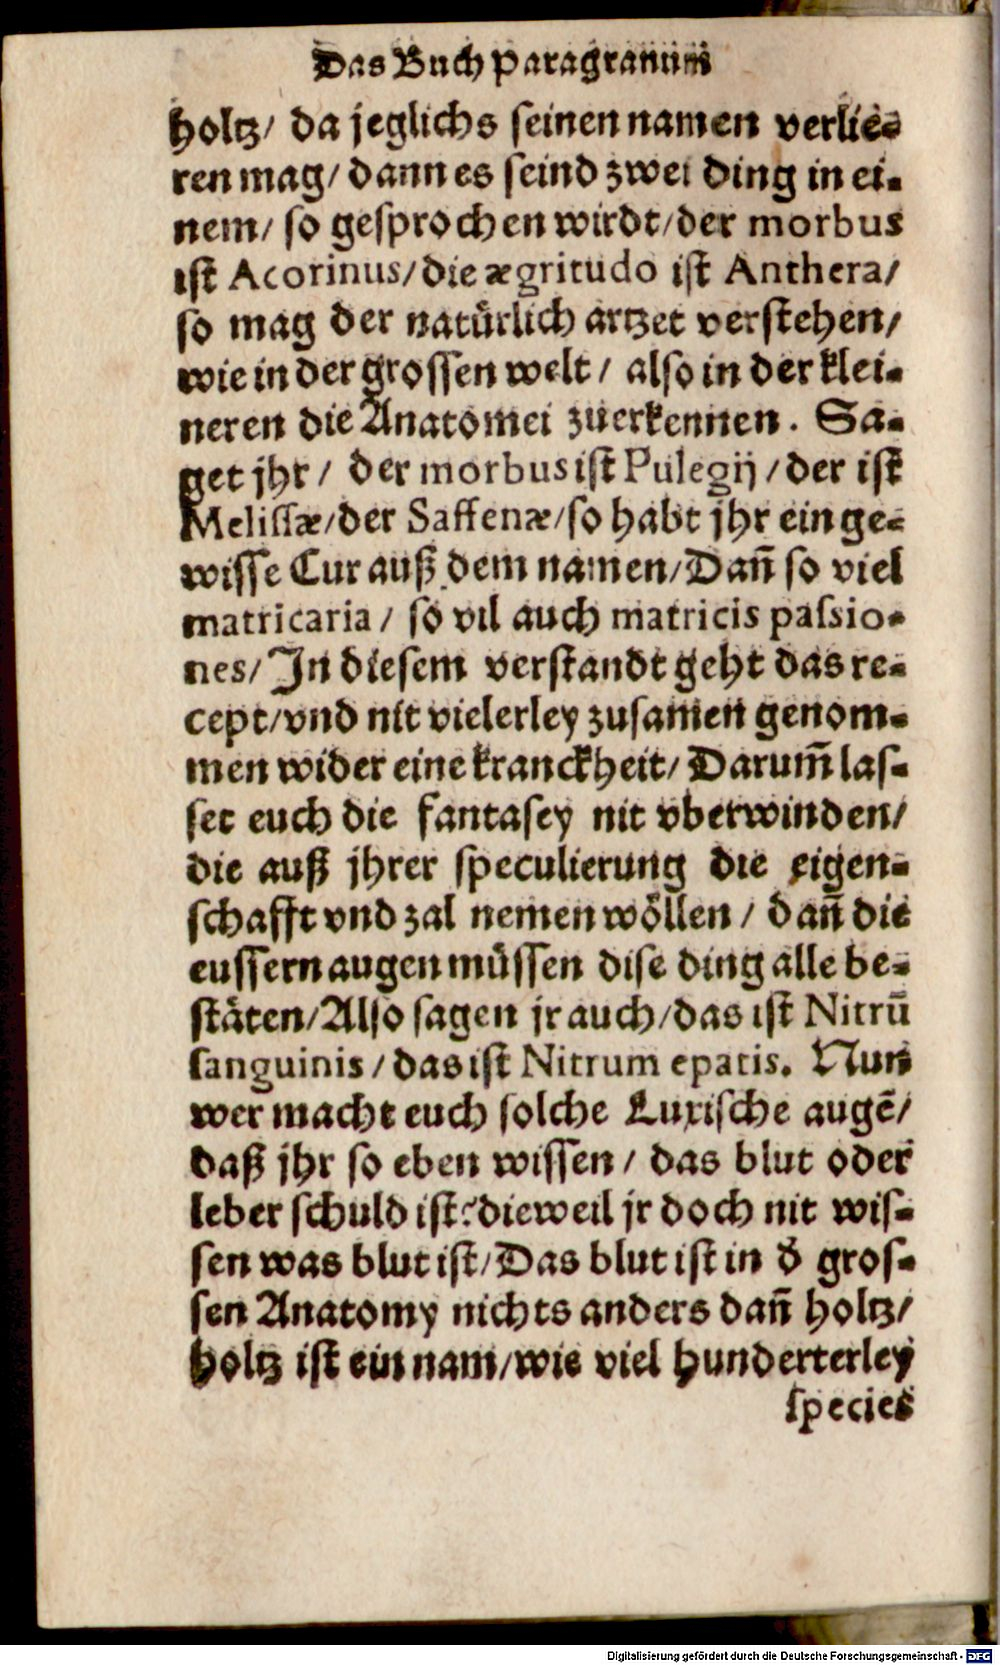 Das Buch Paragranum
holtz/ da jeglichs seinen namen verlie-
ren mag/ dann es seind zwei ding in ei-
nem/ so gesprochen wirdt/ der morbus
ist Acorinus/ die ægritudo ist Anthera/
so mag der natürlich artzet verstehen/
wie in der grossen welt/ also in der klei-
neren die Anatomei zuerkennen. Sa-
get jhr/ der morbus ist Pulegij/ der ist
Melissæ/ der Saffenæ/ so habt jhr ein ge-
wisse Cur auß dem namen/ Dañ so viel
matricaria/ so vil auch matricis passio-
nes/ In diesem verstandt geht das re-
cept/ vnd nit vielerley zusamen genom-
men wider eine kranckheit/ Darum̃ las-
set euch die fantasey nit vberwinden/
die auß jhrer speculierung die eigen-
schafft vnd zal nemen wöllen/ dañ die
eussern augen müssen dise ding alle be-
stäten/ Also sagen jr auch/ das ist Nitrũ
sanguinis/ das ist Nitrum epatis. Nun
wer macht euch solche Luxische augẽ/
daß jhr so eben wissen/ das blut oder
leber schuld ist? dieweil jr doch nit wis-
sen was blut ist/ Das blut ist in d̕ gros-
sen Anatomy nichts anders dañ holtz/
holtz ist ein nam/ wie viel hunderterley
species
Digitalisierung gefördert durch die Deutsche Forschungsgemeinschaft - DFG